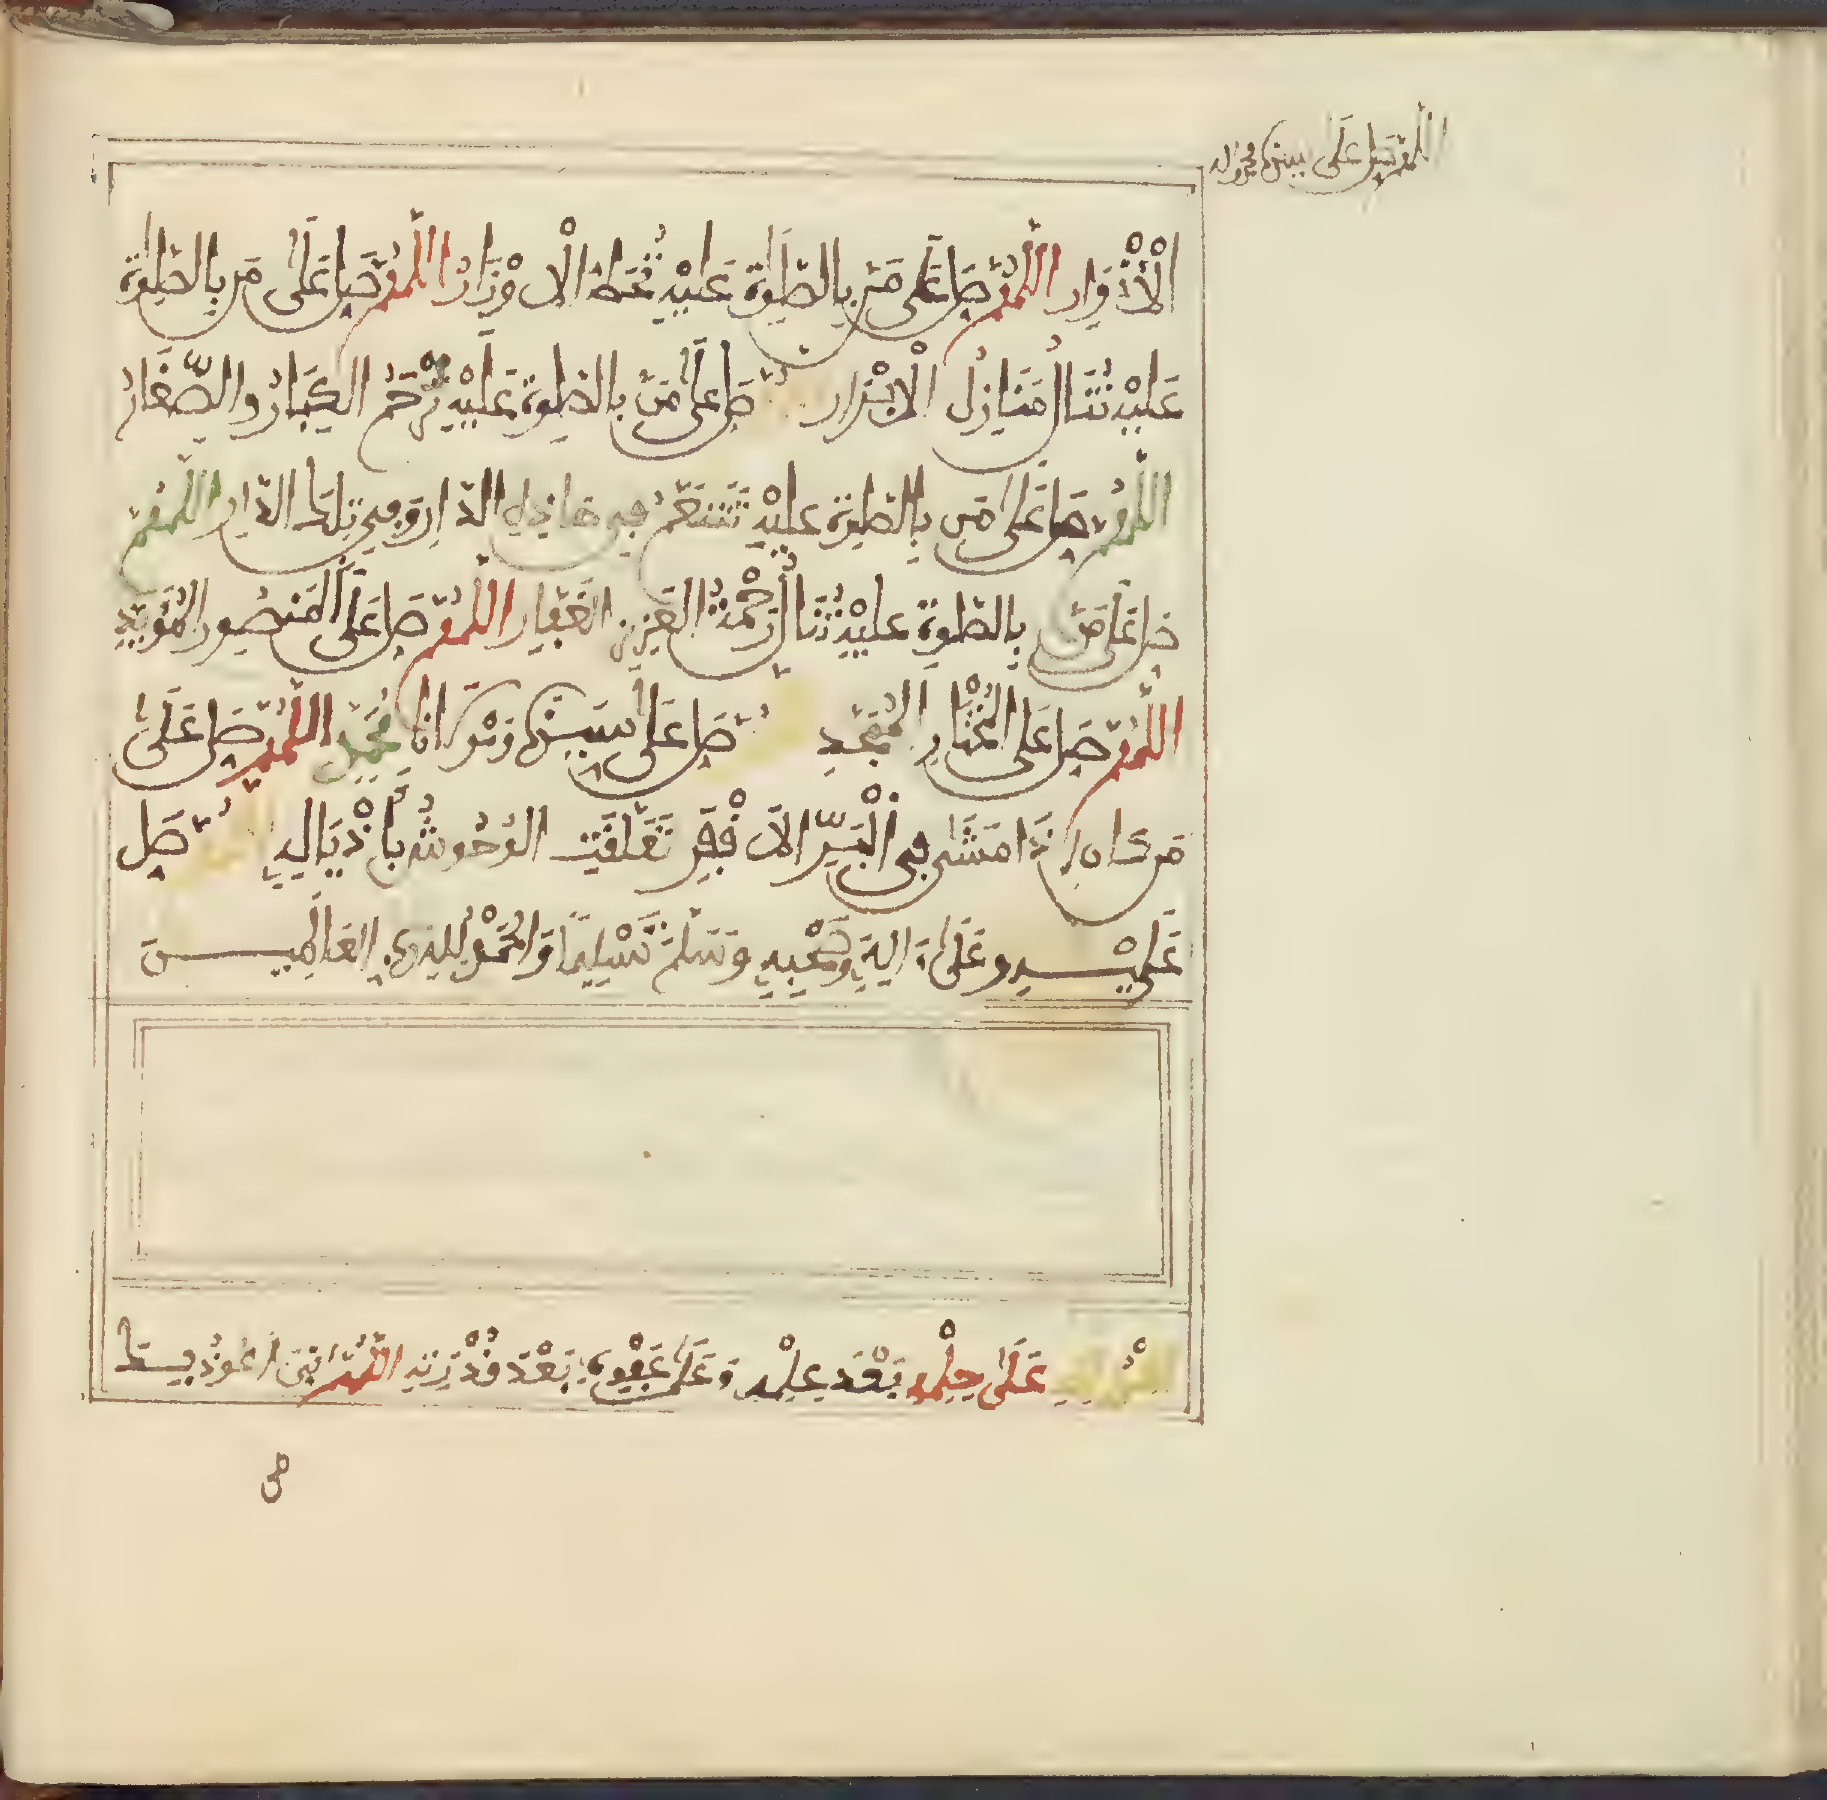 اللهم صل على سيدنا محمد واله
الْأَنْوَارِ اللَّهُمَّ صَلِّ عَلَى مَنْ بِالصَّلَوةِ عَلَيْهِ تُحَطُّ الْأَوْزَارُ اللَّهُمَّ صَلِّ عَلَى مَن بِالصَّلَوةِ
عَلَيْهِ تُنَالُ مَنَازِلُ الْأَبْرَارِ صَلِّ عَلَى مَنْ بِالصَّلَوةِ عَلَيْهِ يُرْحَمُ الكِبَارُ والصِّغَارُ
اللَّهُمَّ صَلِّ عَلَى مَن بِالصَّلَوةِ عَلَيْهِ نَتَنَعَّمُ فِي هَاذِهِ الدَّارِ وَفِي تِلْكَ الدَّارِ اللَّهُمَّ
صَلِّ عَلَى مَنْ بِالصَّلَوةِ عَلَيْهِ تُنَالُ رَحْمَةُ العَزِيزِ الغَفَّارِ اللَّهُمَّ صَلِّ عَلَى المَنصُورِ المُؤَيَّدِ
اللَّهُمَّ صَلِّ عَلَى المُخْتَارِ المُمَجَّدِ صَلِّ عَلَى سَيِّدِنَا وَمَوْلَانَا مُحَمَّدٍ اللَّهُمَّ صَلِّ عَلَى
مَن كَانَ إِذَا مَشَى فِي الْبَرِّ الْأَقْفَرِ تَعَلَّقَتِ الوُحُوشُ بِأَذْيَالِهِ صَلِّ
عَلَيْهِ وعَلَى ءَالِهِ وَصَحْبِهِ وَسَلِّمْ تَسْلِيمًا وَالحَمْدُ لِلهِ رَبِّ العَالَمِينَ
الحَمْدُ لِلهِ عَلَى حِلْمِهِ بَعْدَ عِلْمِهِ وَعَلَى عَفْوِهِ بَعْدَ قُدْرَتِهِ اللَّهُمَّ إِنِّي أَعُوذُ بِكَ